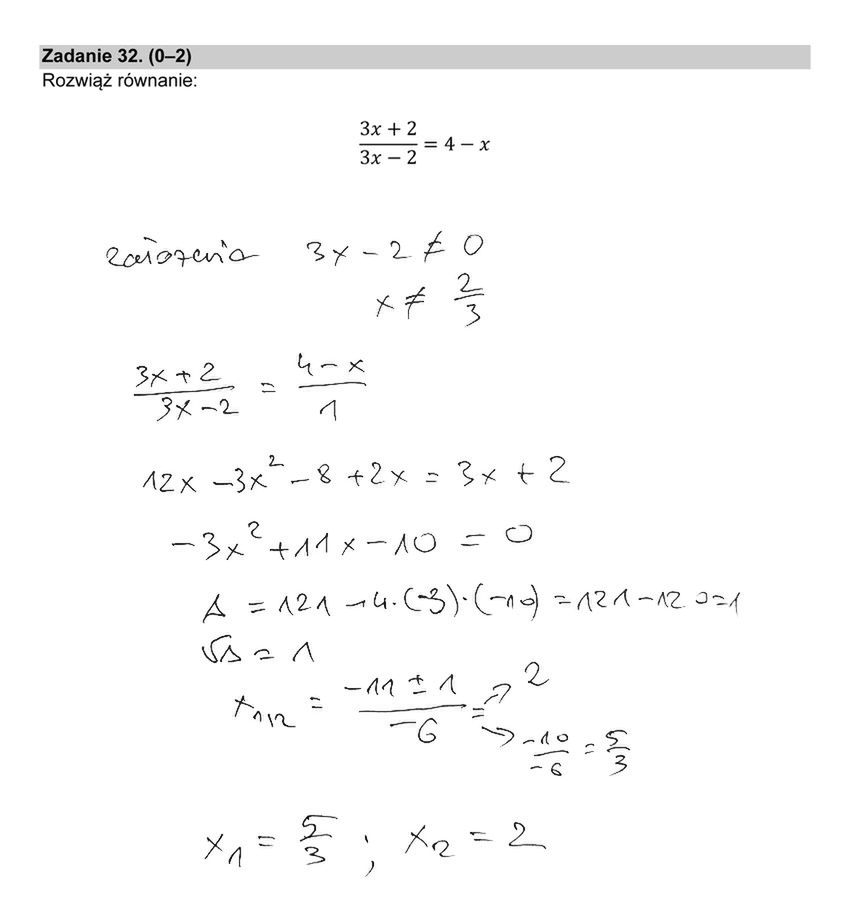 Zadanie 32. (0–2)
Rozwiąż równanie:
3x + 2
3x − 2
= 4 − x
założenia 3x − 2 ≠ 0
x ≠ 2/3
3x + 2 / 3x − 2 = 4 − x / 1
12x − 3x² − 8 + 2x = 3x + 2
−3x² + 11x − 10 = 0
Δ = 121 − 4·(−3)·(−10) = 121 − 120 = 1
√Δ = 1
x1,2 = −11 ± 1 / −6 = ↗ 2
↘ −10/−6 = 5/3
x1 = 5/3 ; x2 = 2